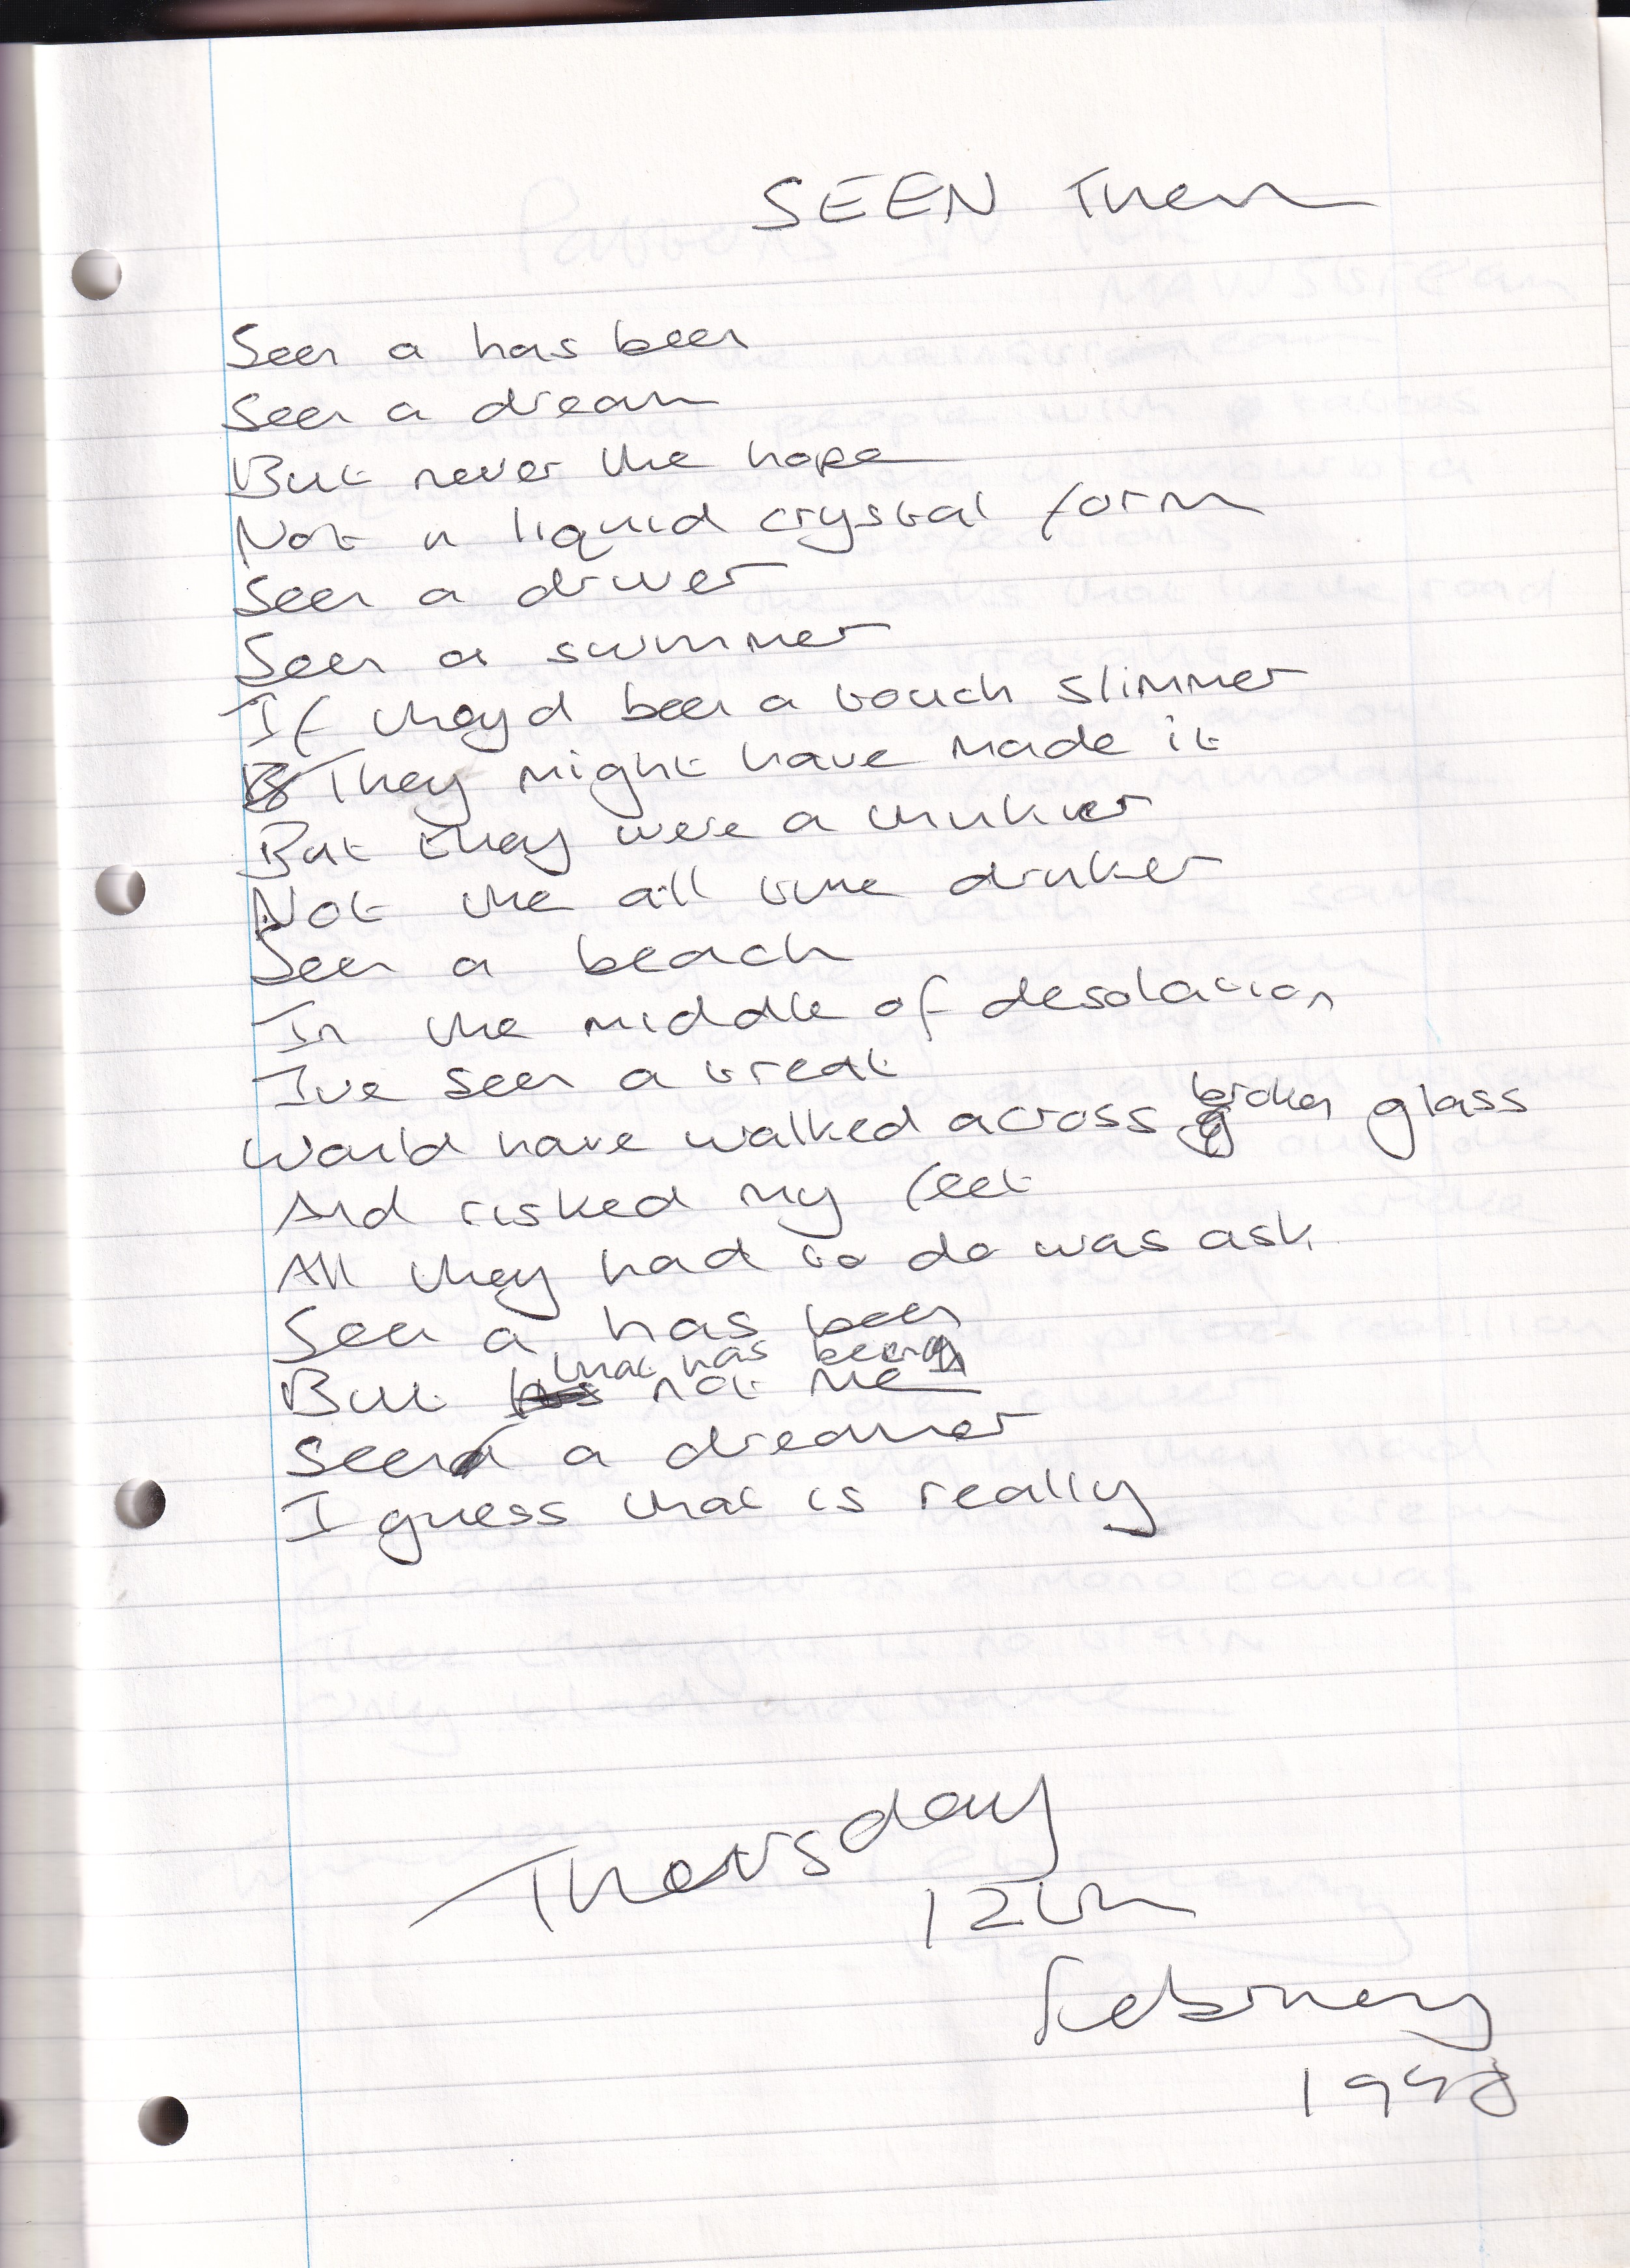 SEEN Them
Seen a has been
Seen a dream
But never the hope
Not a liquid crystal form
Seen a driver
Seen a swimmer
If they'd been a touch slimmer
They might have made it
But they were a thinker
Not the all time drinker
Seen a beach
In the middle of desolation
I've seen a treat
Would have walked across broken glass
And risked my feet
All they had to do was ask
Seen a has been
But that has been not me
Seen a dreamer
I guess that is really
Thursday
12th
February
1998